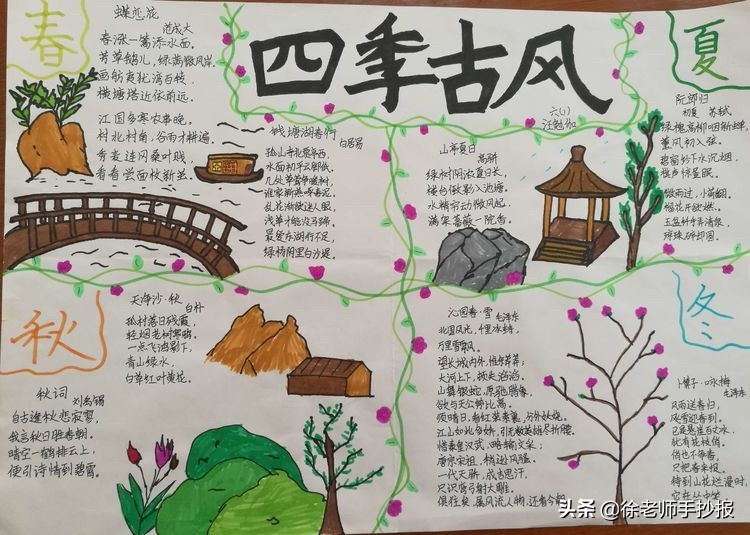 四季古风
六(1)
春
蝶恋花
范成大
春涨一篙添水面。
芳草鹅儿,绿满微风岸。
画舫夷犹湾百转,
横塘塔近依前远。
江国多寒农事晚。
村北村南,谷雨才耕遍。
秀麦连冈桑叶贱,
看看尝面收新茧。
钱塘湖春行
白居易
孤山寺北贾亭西,
水面初平云脚低。
几处早莺争暖树,
谁家新燕啄春泥。
乱花渐欲迷人眼,
浅草才能没马蹄。
最爱东湖行不足,
绿杨阴里白沙堤。
夏
山亭夏日
高骈
绿树阴浓夏日长,
楼台倒影入池塘。
水精帘动微风起,
满架蔷薇一院香。
阮郎归
初夏 苏轼
绿槐高柳咽新蝉,
薰风初入弦。
碧窗纱下水沉烟,
棋声惊昼眠。
微雨过,小荷翻,
榴花开欲燃。
玉盆纤手弄清泉,
琼珠碎却圆。
秋
天净沙·秋
白朴
孤村落日残霞,
轻烟老树寒鸦,
一点飞鸿影下,
青山绿水,
白草红叶黄花。
秋词
刘禹锡
自古逢秋悲寂寥,
我言秋日胜春朝。
晴空一鹤排云上,
便引诗情到碧霄。
冬
沁园春·雪 毛泽东
北国风光,千里冰封,
万里雪飘。
望长城内外,惟余莽莽;
大河上下,顿失滔滔。
山舞银蛇,原驰蜡象,
欲与天公试比高。
须晴日,看红装素裹,分外妖娆。
江山如此多娇,引无数英雄竞折腰。
惜秦皇汉武,略输文采;
唐宗宋祖,稍逊风骚。
一代天骄,成吉思汗,
只识弯弓射大雕。
俱往矣,数风流人物,还看今朝
卜算子·咏梅
毛泽东
风雨送春归,
飞雪迎春到。
已是悬崖百丈冰,
犹有花枝俏。
俏也不争春,
只把春来报。
待到山花烂漫时,
它在丛中笑
头条 @徐老师手抄报